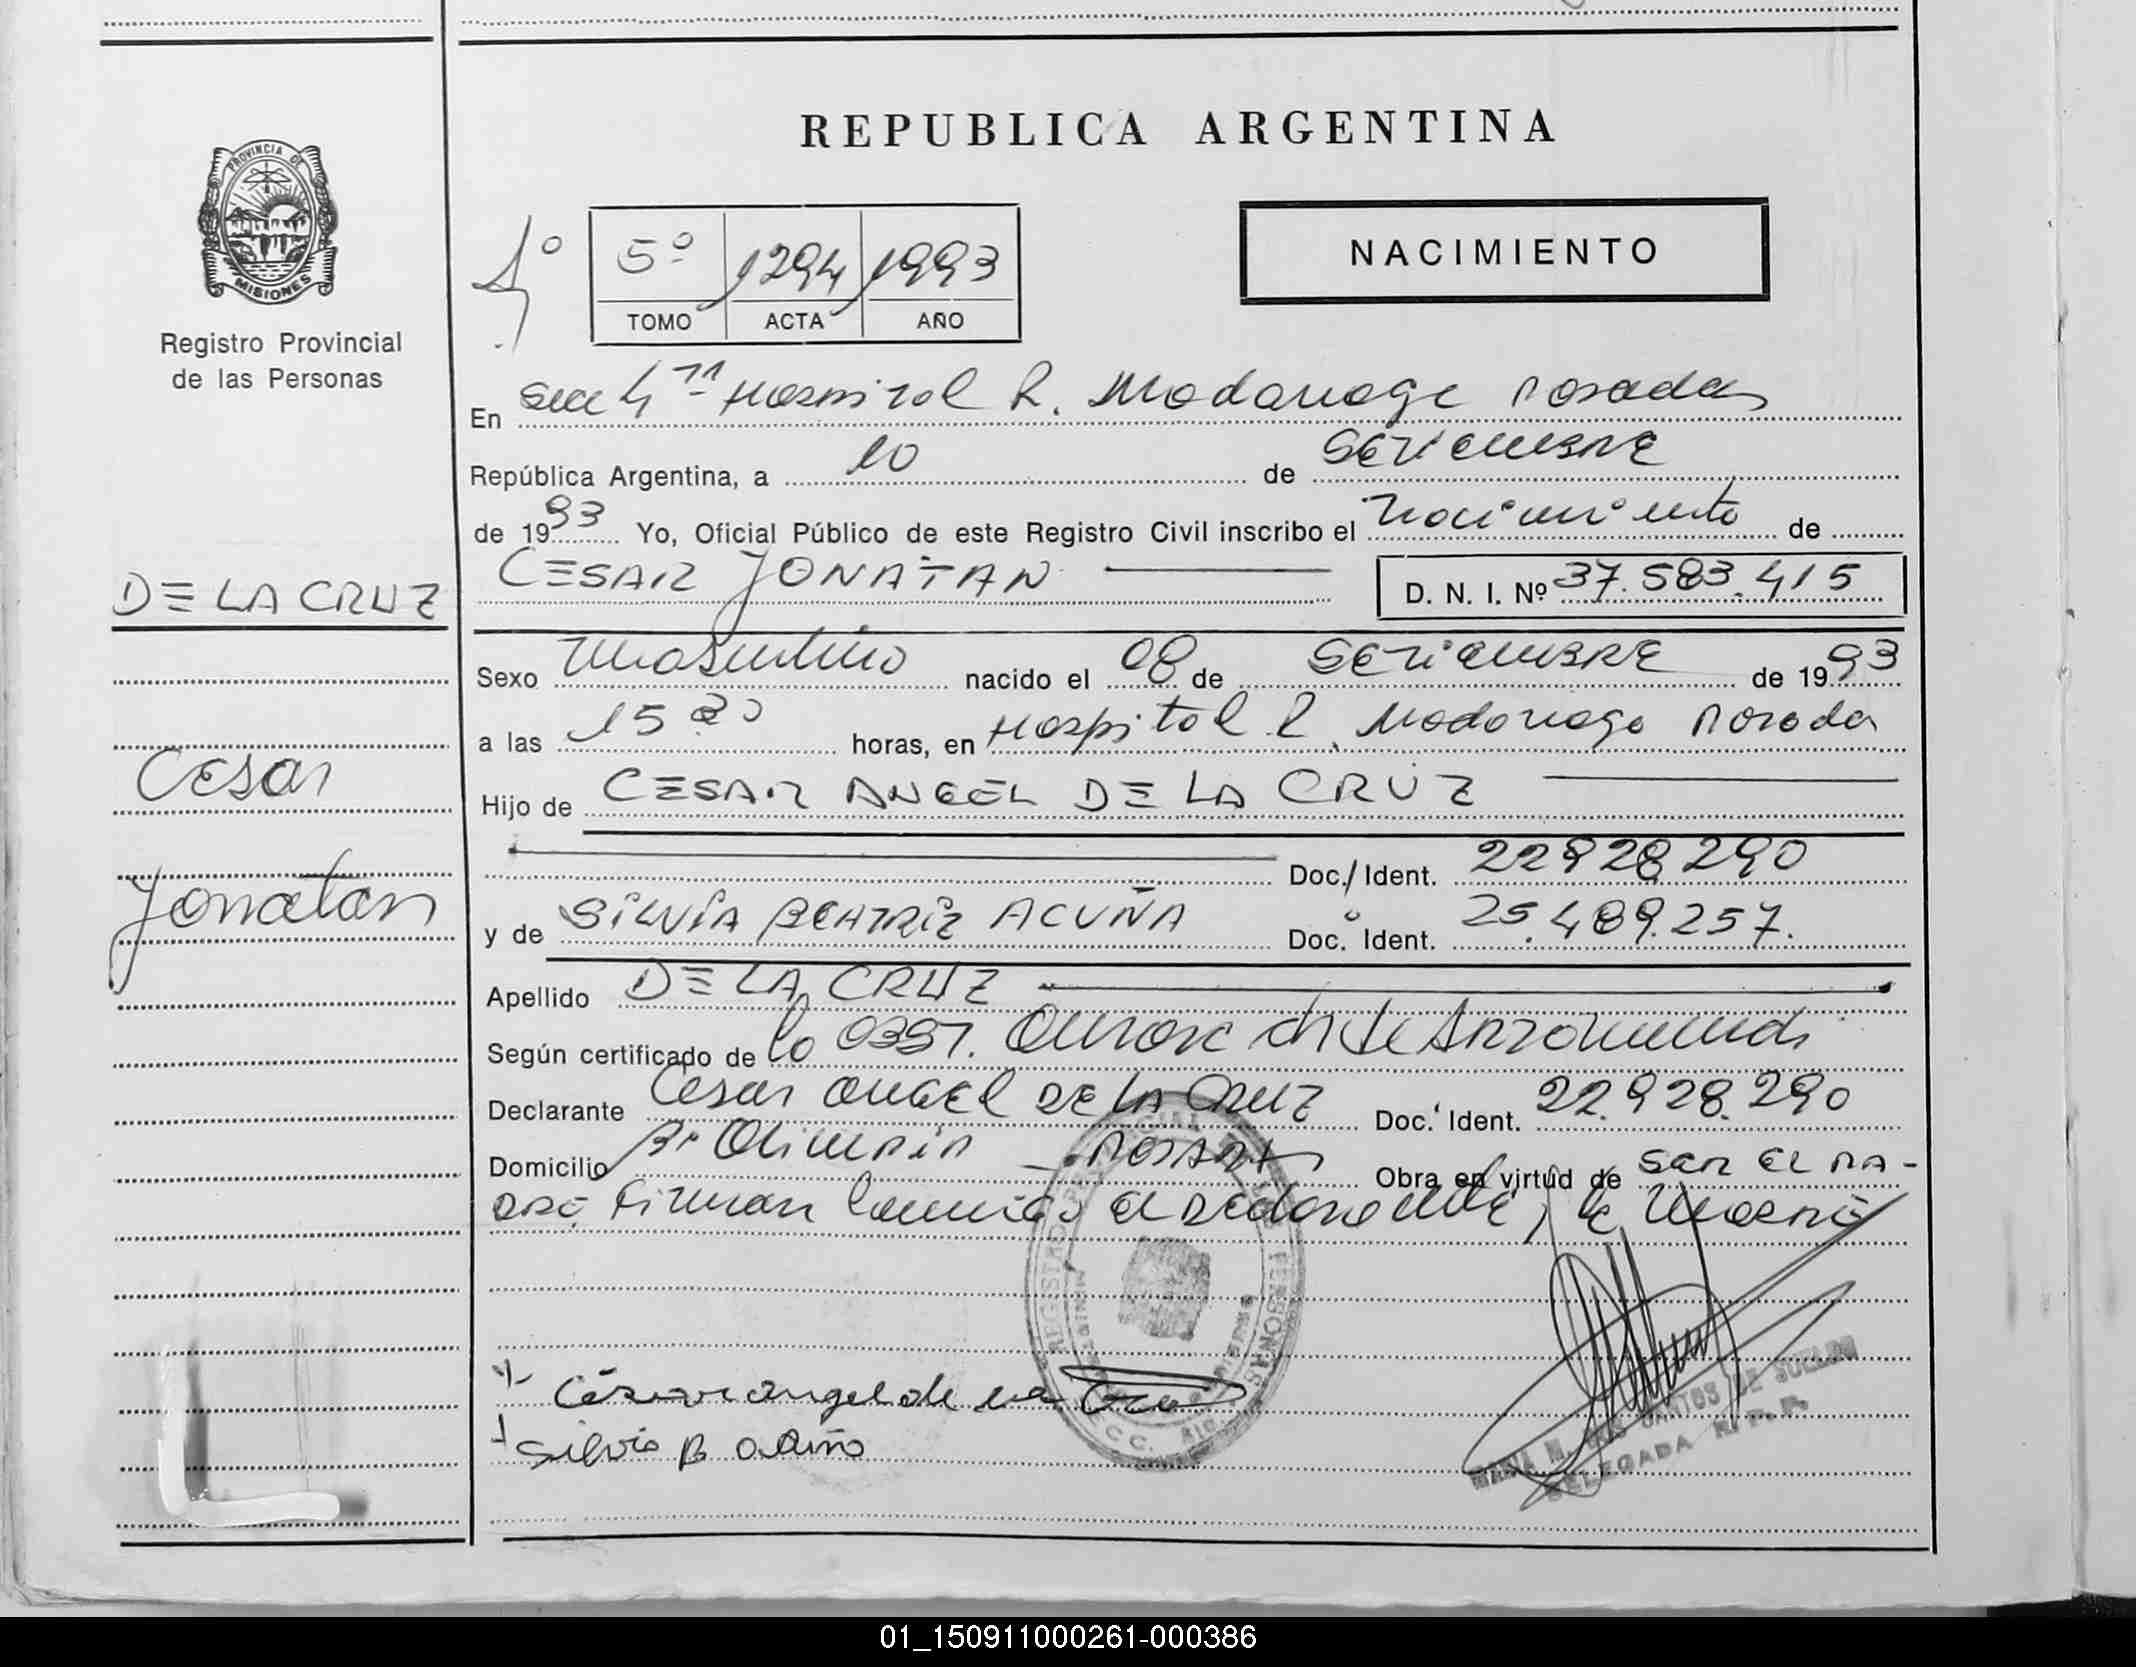 REPUBLICA ARGENTINA
PROVINCIA DE MISIONES
Registro Provincial
de las Personas
5º 1294 1993
TOMO ACTA AÑO
NACIMIENTO
En Secc 4ª Hospital R. Madariaga Posadas
República Argentina, a 10 de SETIEMBRE
de 1993 Yo, Oficial Público de este Registro Civil inscribo el nacimiento de
DE LA CRUZ
CESAR JONATAN D. N. I. Nº 37.583.415
Sexo Masculino nacido el 08 de SETIEMBRE de 1993
a las 15 horas, en Hospital R. Madariaga Posadas
Cesar
Hijo de CESAR ANGEL DE LA CRUZ
Doc. Ident. 22928290
Jonatan
y de SILVIA BEATRIZ ACUÑA Doc. Ident. 25.489.257.
Apellido DE LA CRUZ
Según certificado de la 0351.
Declarante Cesar ANGEL DE LA CRUZ Doc. Ident. 22.928.290
Domicilio Bº Olimpia - POSADAS Obra en virtud de SER EL PA-
DRE, Firman conmigo el declarante, la
Cesar angel de la Cru
Silvia B
DELEGADA R. P. P.
01_150911000261-000386